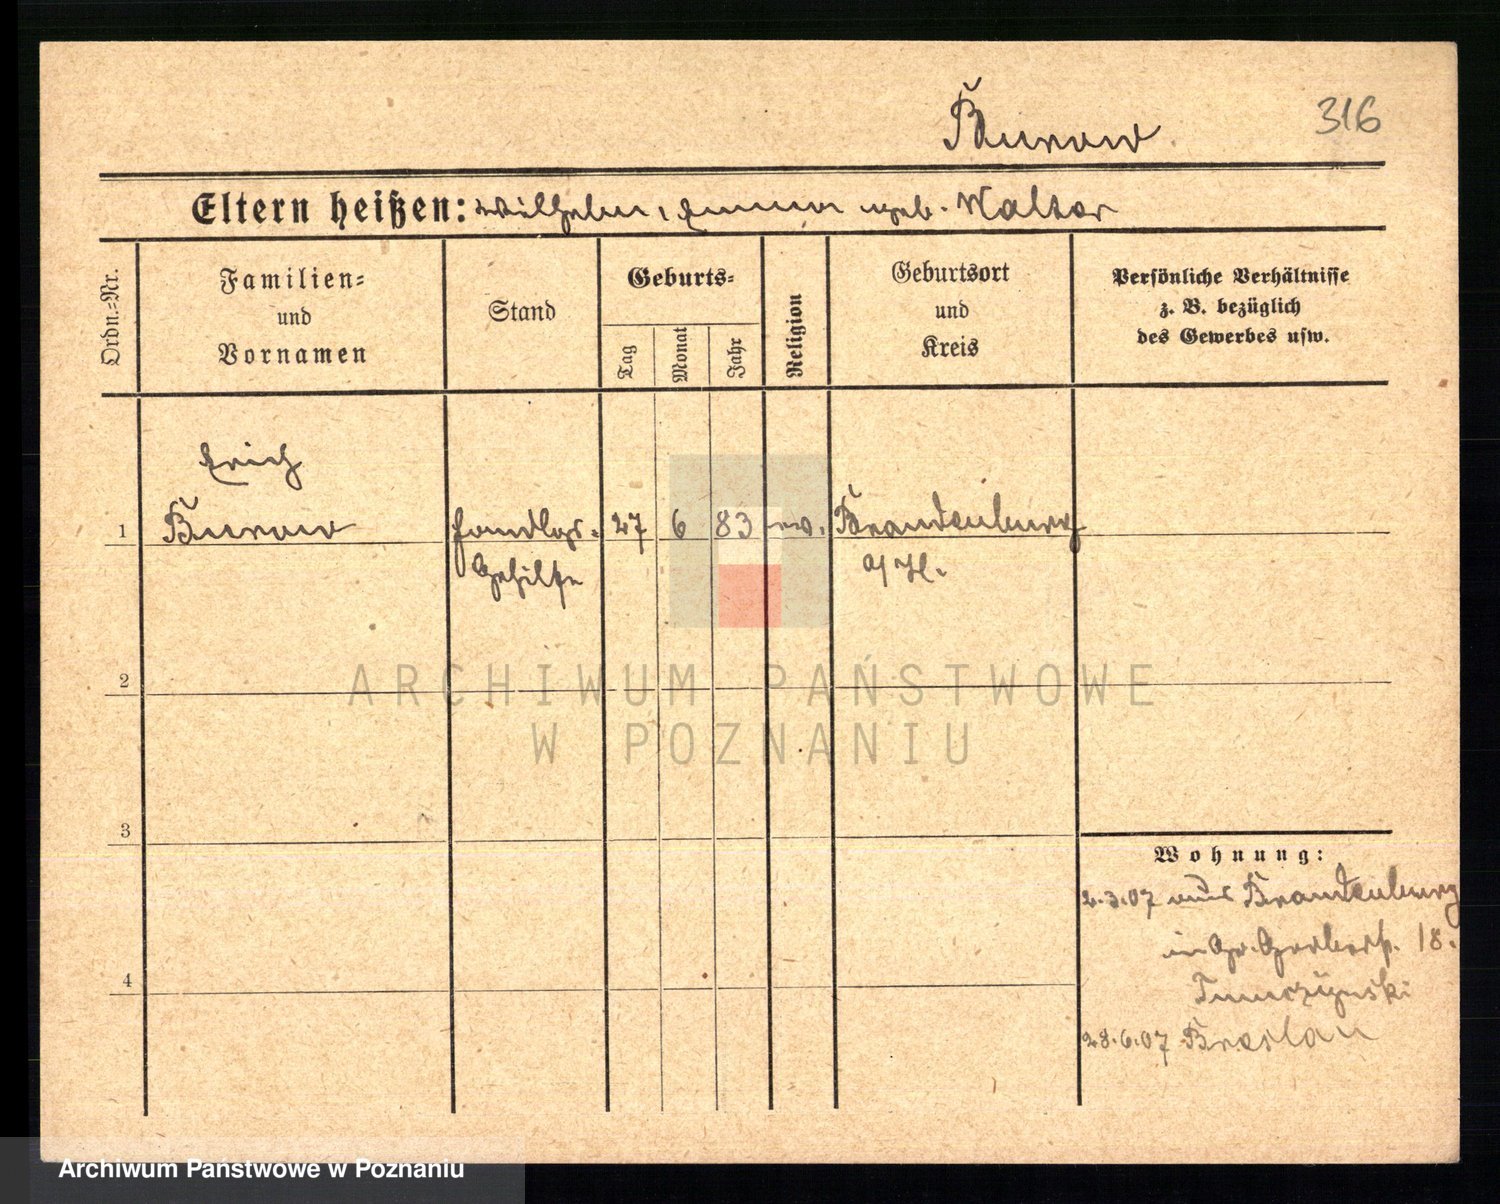 316
Burow
Eltern heißen: Wilhelm, Emma geb. Walter
Ordn.-Nr.
Familien-
und
Vornamen
Stand
Geburts-
Tag
Monat
Jahr
Religion
Geburtsort
und
Kreis
Persönliche Verhältnisse
z. B. bezüglich
des Gewerbes usw.
Erich
1 Burow Handlgs.- 27 6 83 ev. Brandenburg
Gehilfe a/H.
2
ARCHIWUM PAŃSTWOWE
W POZNANIU
3
Wohnung:
2.3.07 aus Brandenburg
in Gr. Gerberstr. 18.
4
28.6.07 Breslau
Archiwum Państwowe w Poznaniu